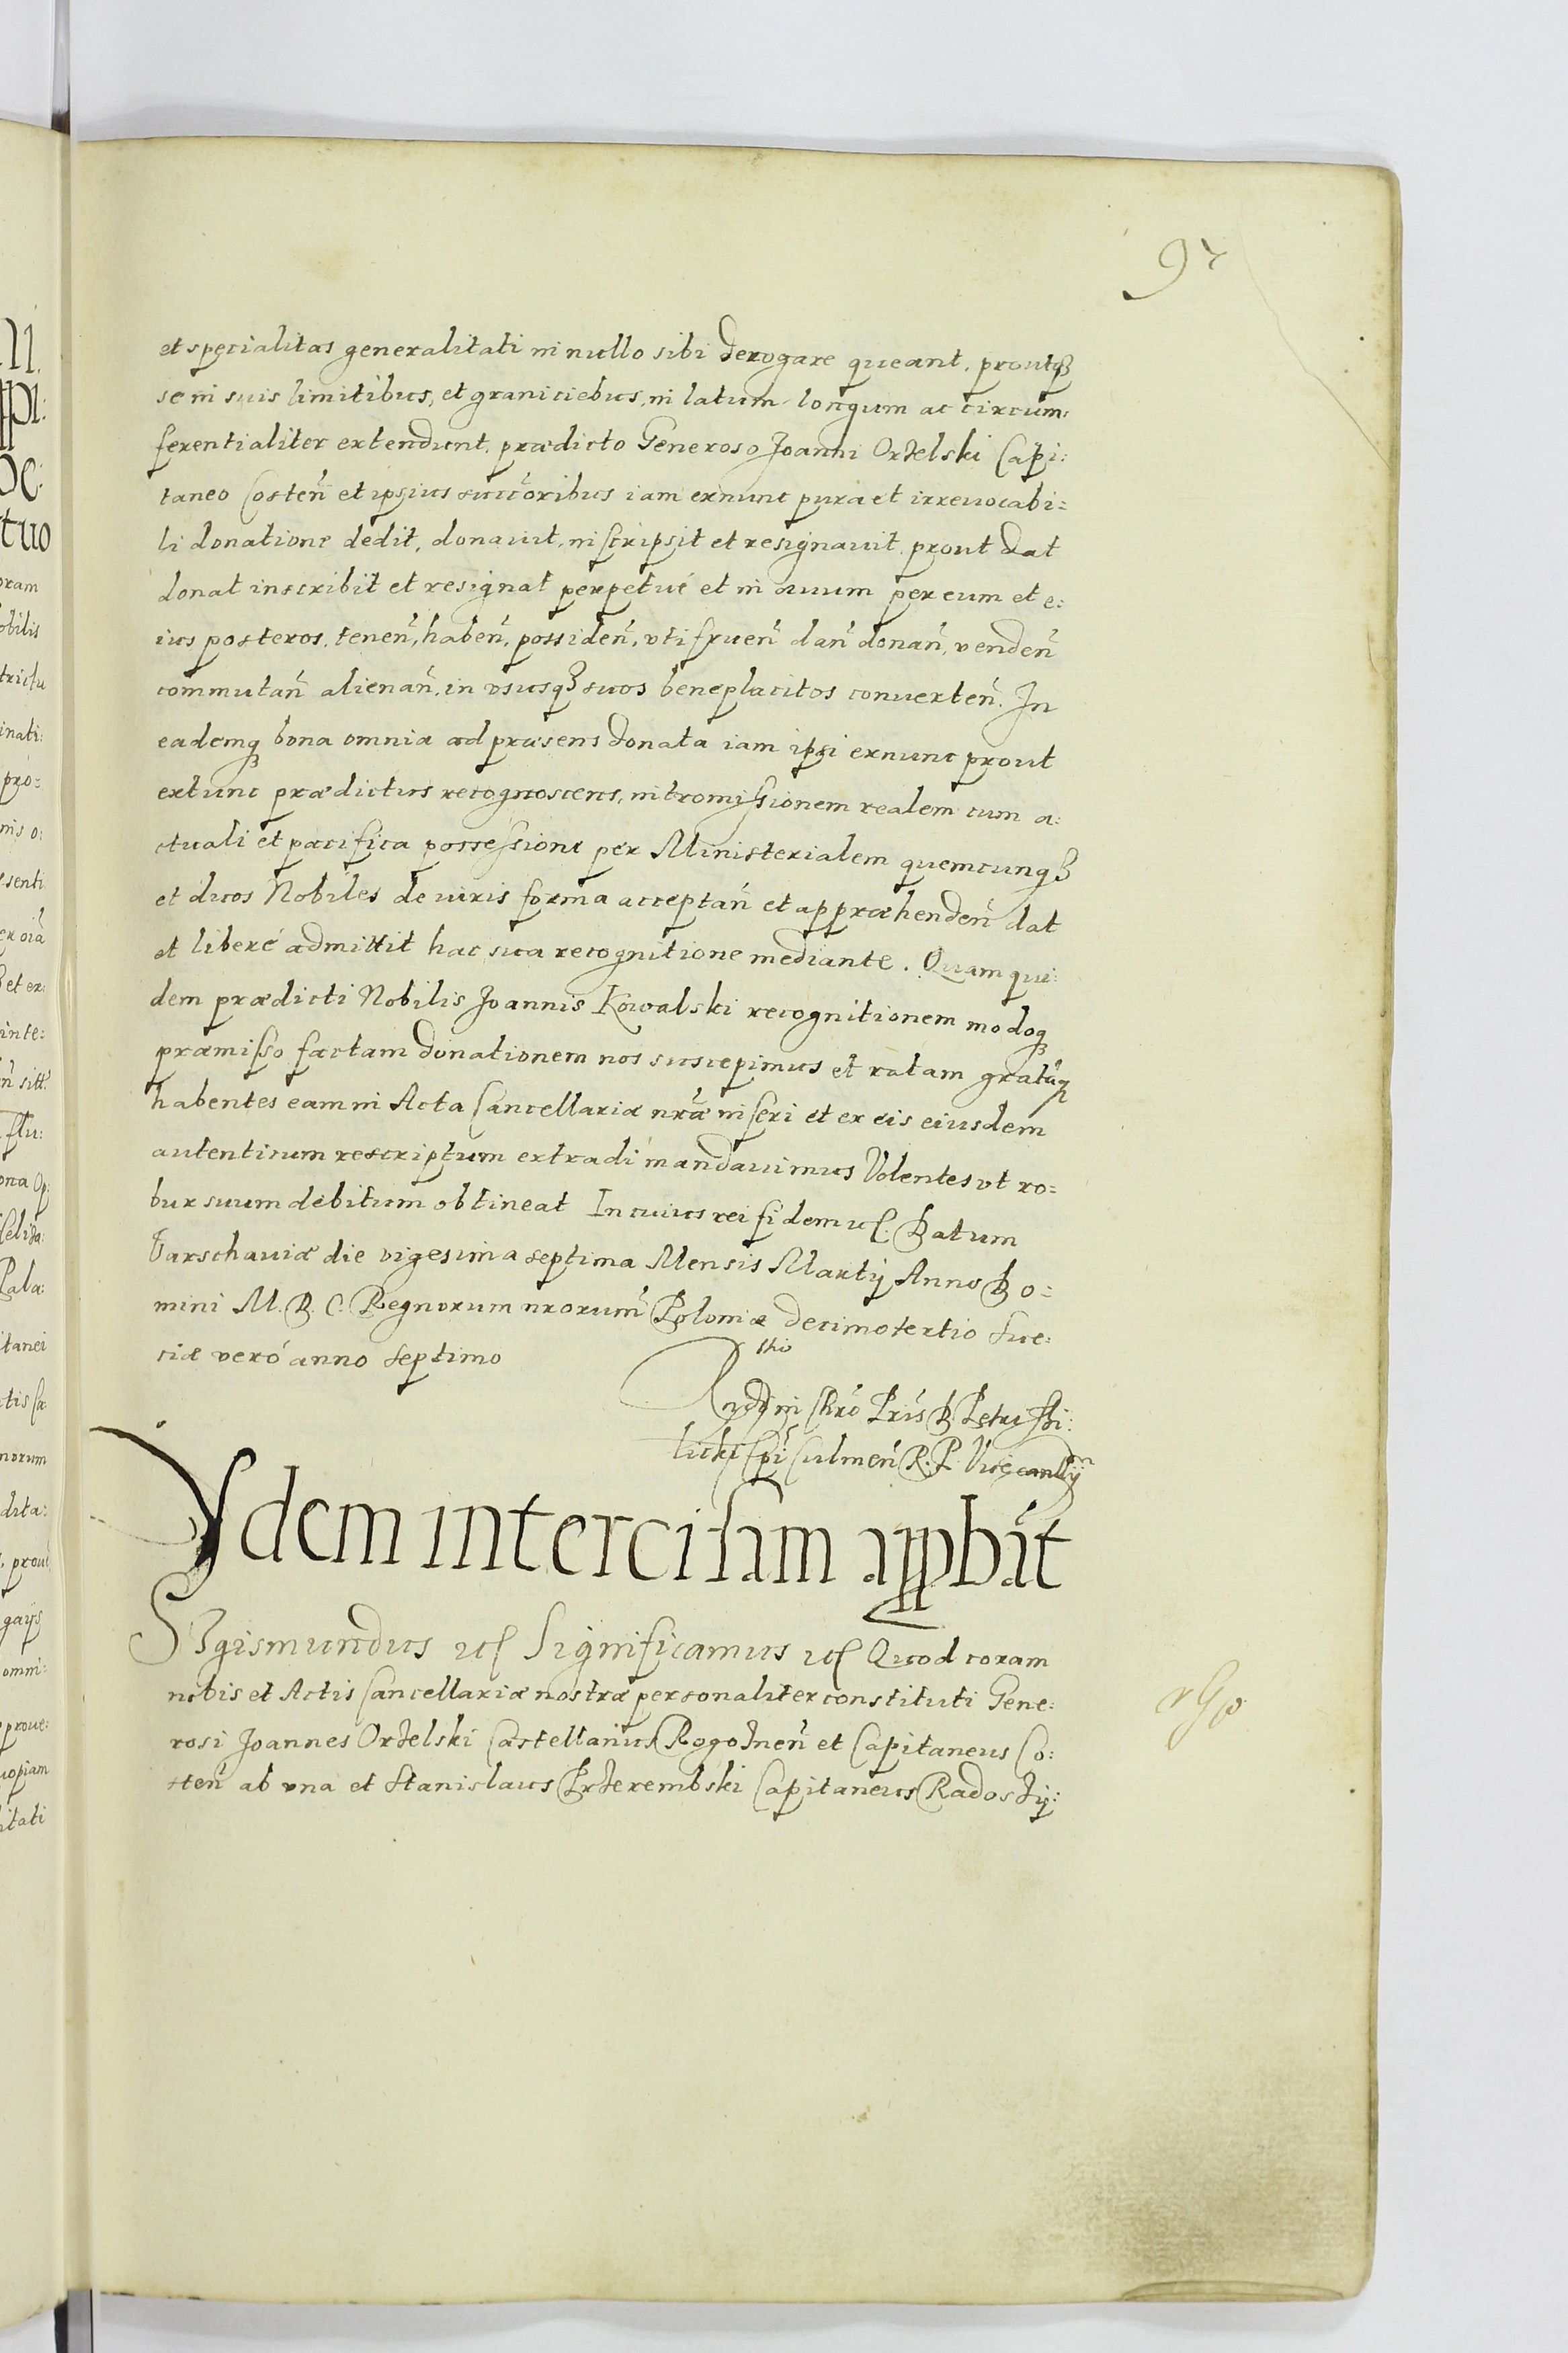 97
et specialitas generalitati in nullo sibi derogare queant, proutq3
se in suis limitibus, et graniciebus, in latum longum ac circum:
ferentialiter extendunt, prædicto Generoso Joanni Orzelski Capi:
taneo Costeñ et ipsius succ̃oribus iam exnunc pura et irreuocabi=
li donatione dedit, donauit, inscripsit et resignauit, prout dat
donat inscribit et resignat perpetué et in æuum per eum et e:
ius posteros, teneñ, habeñ, possideñ, vti frueñ dañ donañ, vendeñ
commutañ alienañ, in vsusq3 suos beneplacitos conuerteñ. In
eademq3 bona omnia ad præsens donata iam ipsi exnunc prout
extunc prædictus recognoscens, intromissionem realem cum a:
ctuali et pacifica possessione per Ministerialem quemcunq3
et duos Nobiles de iuris forma acceptañ et appræhendeñ dat
et liberé admittit hac sua recognitione mediante. Quam qui:
dem prædicti Nobilis Joannis Kowalski recognitionem modoq3
præmisso factam donationem nos suscepimus et ratam gratãq3
habentes eam in Acta Cancellariæ nr̃æ inseri et ex eis eiusdem
autenticum rescriptum extradi mandauimus Volentes vt ro=
bur suum debitum obtineat In cuius rei fidem etc. Datum
Varschauiæ die vigesima septima Mensis Martij Anno Do=
mini M. D. C. Regnorum nrorum̃ Poloniæ decimotertio Sue:
ciæ veró anno septimo
Rndi in Chrõ Pris̃ D. Petri Tli:
licki Epĩ Culmeñ R. P. Vicecanc̃
Ydem intercisam appbãt
SIgismundus etc Significamus etc Quod coram
nobis et Actis Cancellariæ nostræ personaliter constituti Gene:
rosi Joannes Orzelski Castellanus Rogozneñ et Capitaneus Co:
steñ ab vna et Stanislaus Przerembski Capitaneus Radoszij: